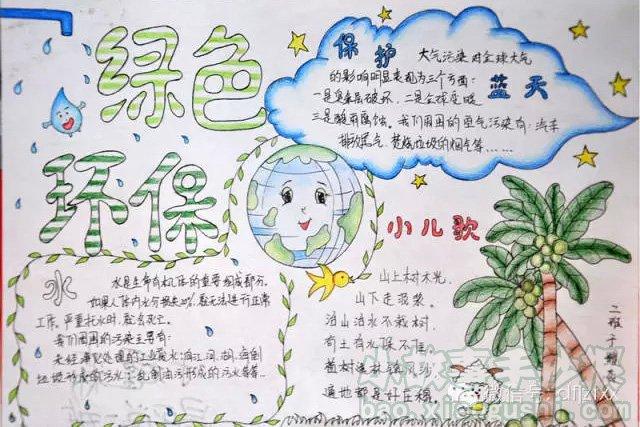 绿色
环保
保护
蓝天
大气污染对全球大气
的影响明显表现为三个方面：
一是臭氧层破坏，二是全球变暖
三是酸雨腐蚀。我们周围的空气污染有：汽车
排放尾气，焚烧垃圾的烟气等……
水
水是生命有机体的重要组成部分。
如果人体内水分损失20%，就无法进行正常
工作。严重托水时，就会死亡。
我们周围的污染主要有：
未经净化处理的工业废水；向江、河、湖、海倒
垃圾形成的污水；乱倒油污形成的污水等等……
小儿歌
山上树木光，
山下走泥浆。
治山治水不栽树，
有土有水保不住。
植树造林
遍地都是好庄稼。
二班
微信号: dfjzfxx